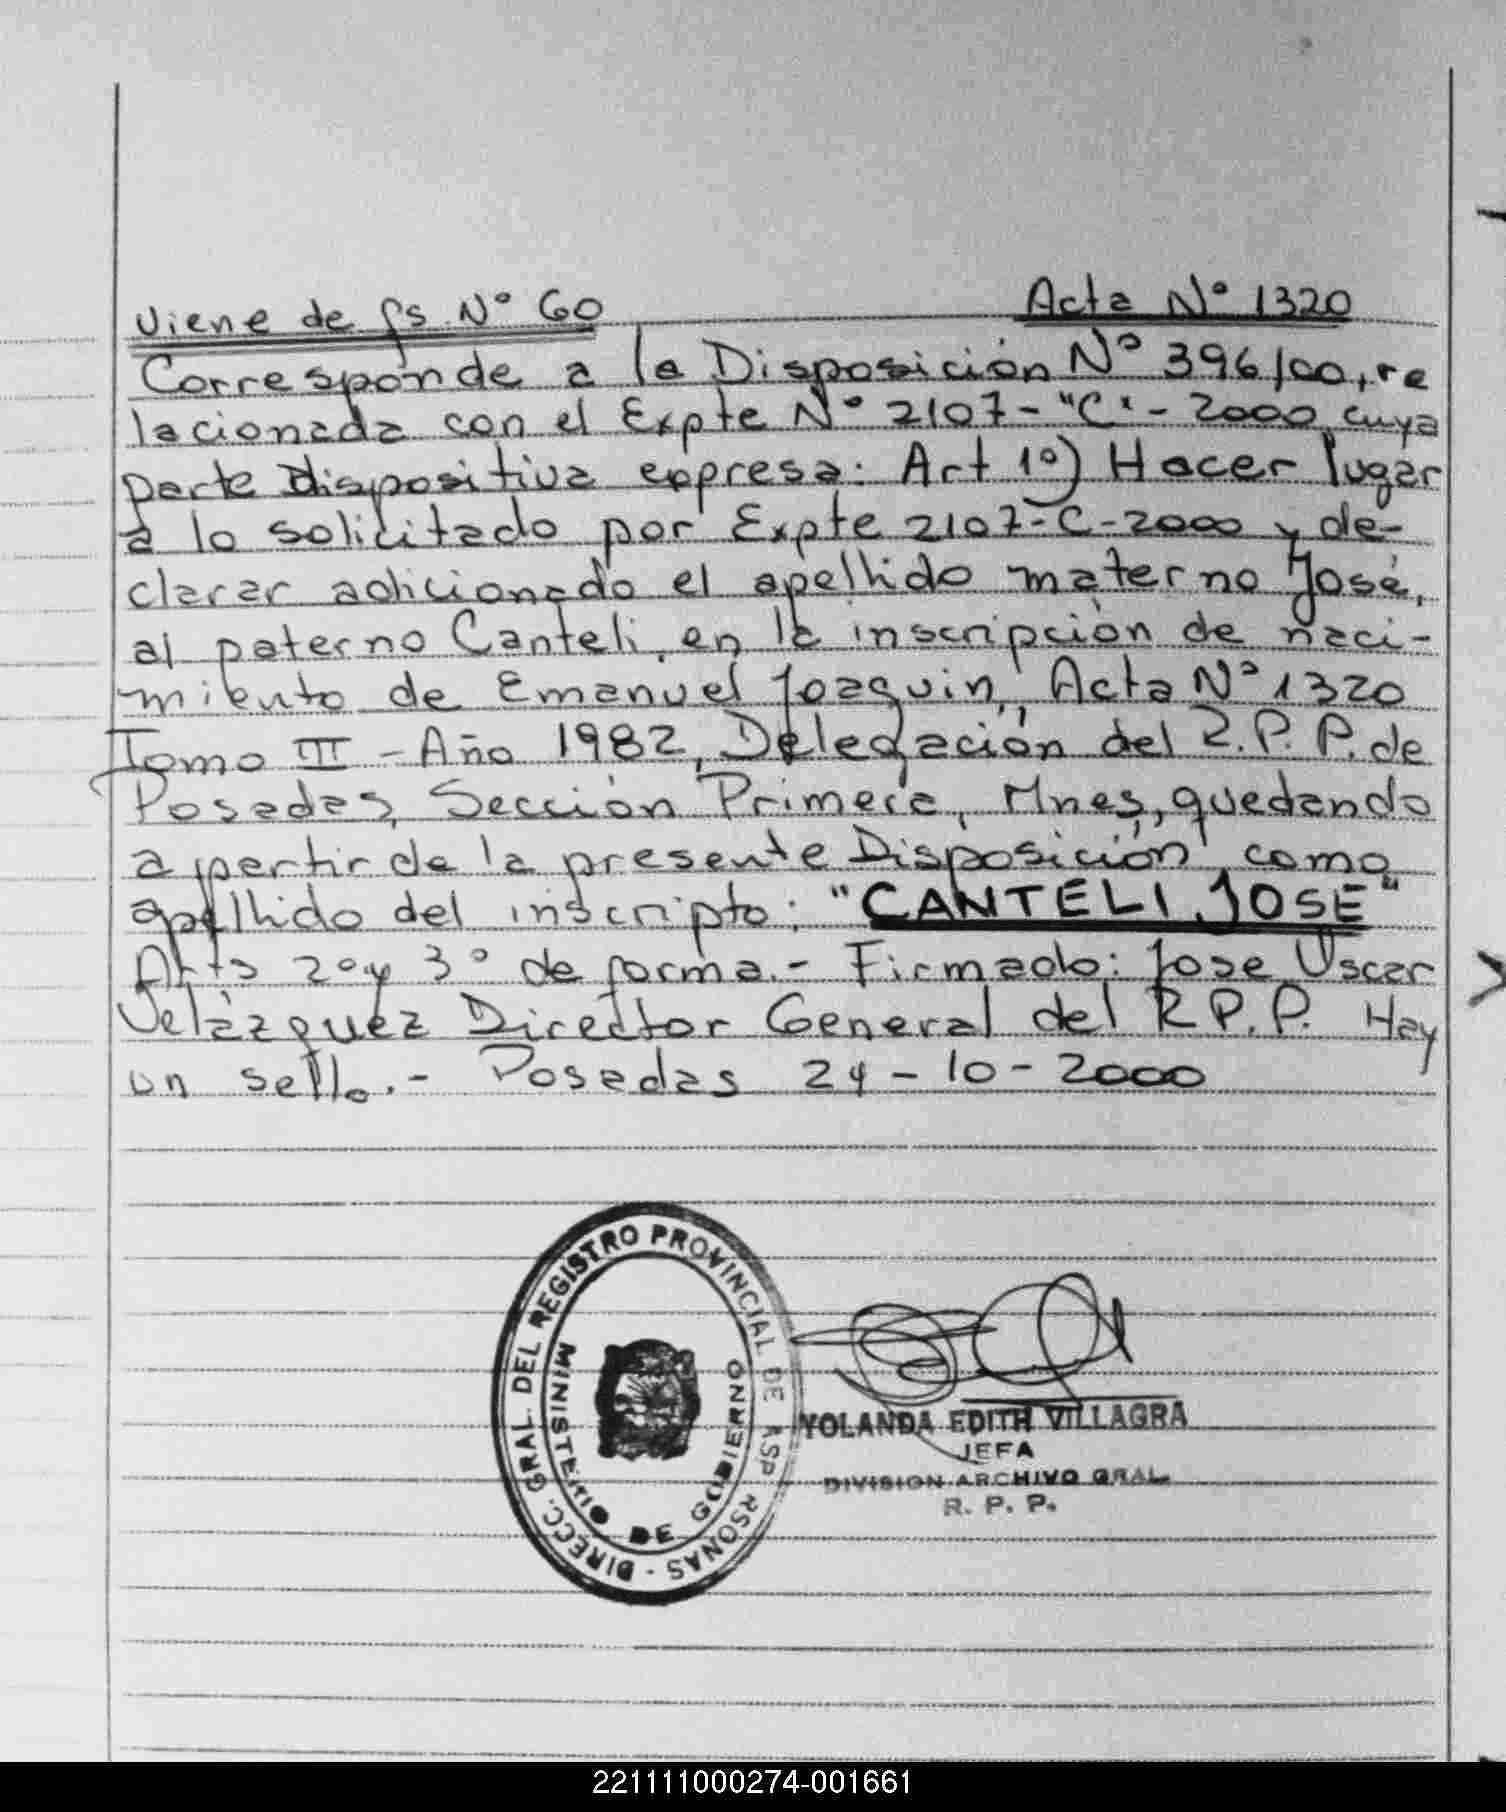 Viene de fs. Nº 60
Acta Nº 1320
Corresponde a la Disposición Nº 396/00, re
lacionada con el Expte Nº 2107-"C"-2000, cuya
parte Dispositiva expresa: Art 1º) Hacer lugar
a lo solicitado por Expte 2107-C-2000 y de-
clarar adicionado el apellido materno José,
al paterno Canteli, en la inscripción de naci-
miento de Emanuel Joaquin, Acta Nº 1320
Tomo III - Año 1982, Delegación del R.P.P. de
Posadas, Sección Primera, Mnes, quedando
a partir de la presente Disposición como
apellido del inscripto: "CANTELI JOSE"
Arts 2º y 3º de forma.- Firmado: Jose Oscar
Velázquez Director General del R.P.P. Hay
un sello.- Posadas 24-10-2000
DIRECC. GRAL. DEL REGISTRO PROVINCIAL DE LAS PERSONAS -
MINISTERIO DE GOBIERNO
YOLANDA EDITH VILLAGRA
JEFA
DIVISION ARCHIVO GRAL.
R. P. P.
221111000274-001661